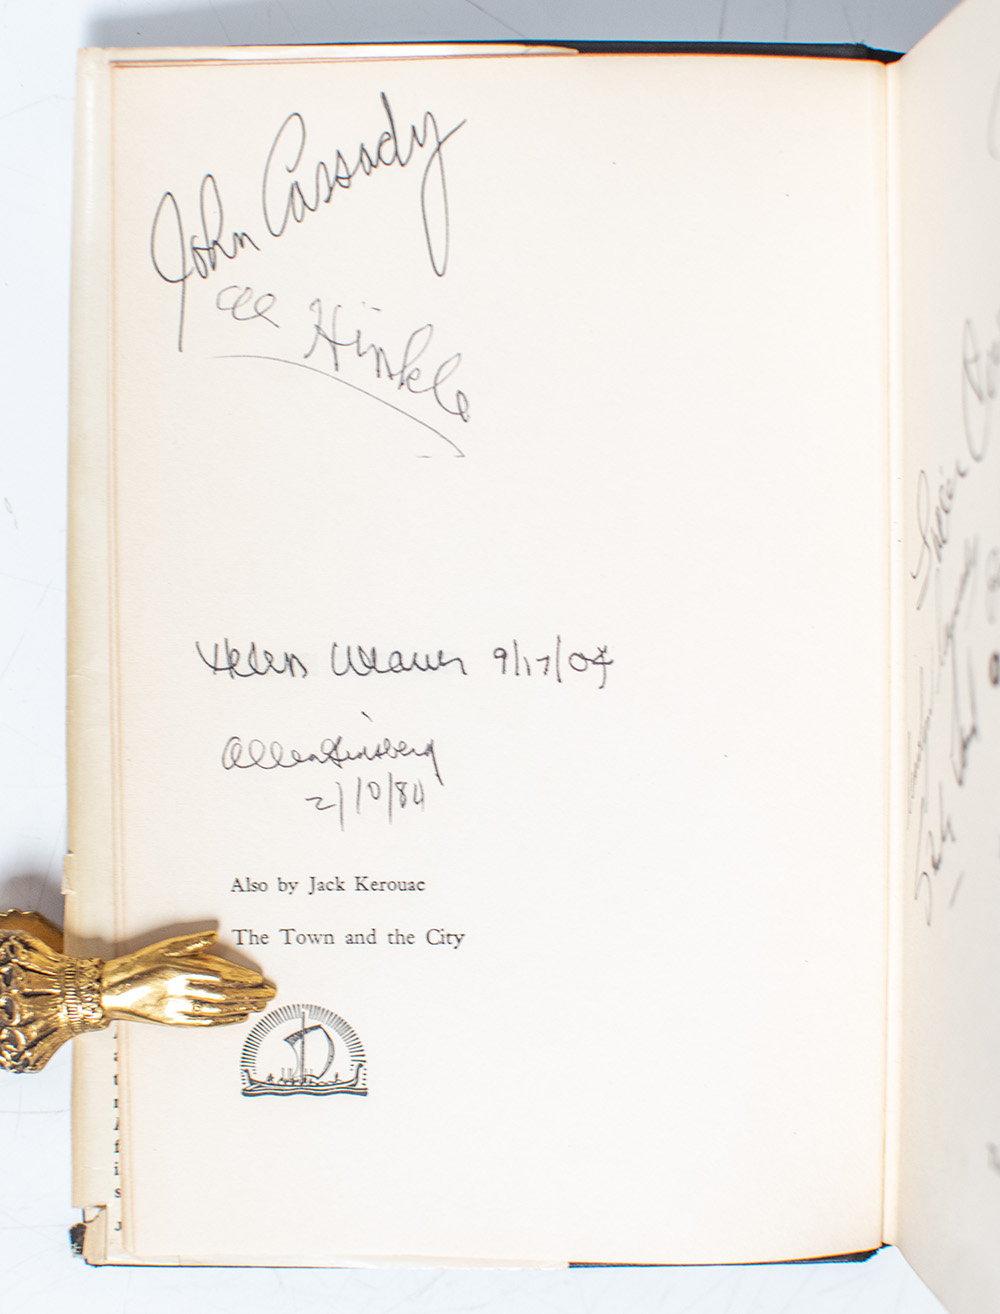 John Cassady
Al Hinkle
Helen Weaver 9/17/04
Allen Ginsberg
2/10/84
Also by Jack Kerouac
The Town and the City